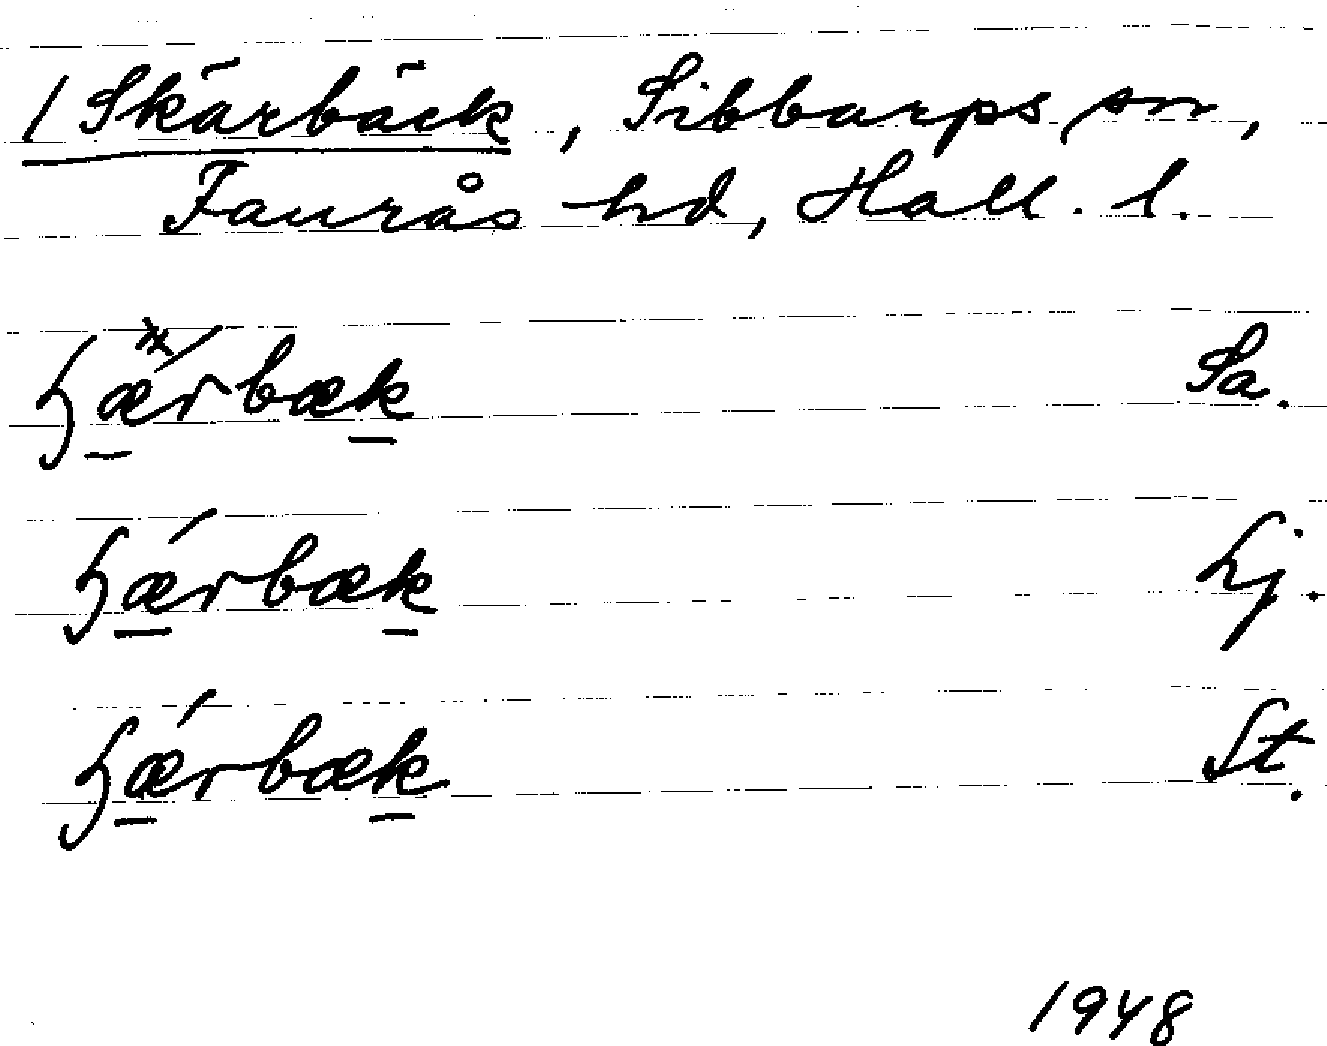 / Skärbäck, Sibbarps sn,
Faurås hd, Hall. l.
ɧǽ̱rbæḵ Sa.
ɧǽ̱rbæḵ Lj.
ɧǽ̱rbæḵ St.
1948